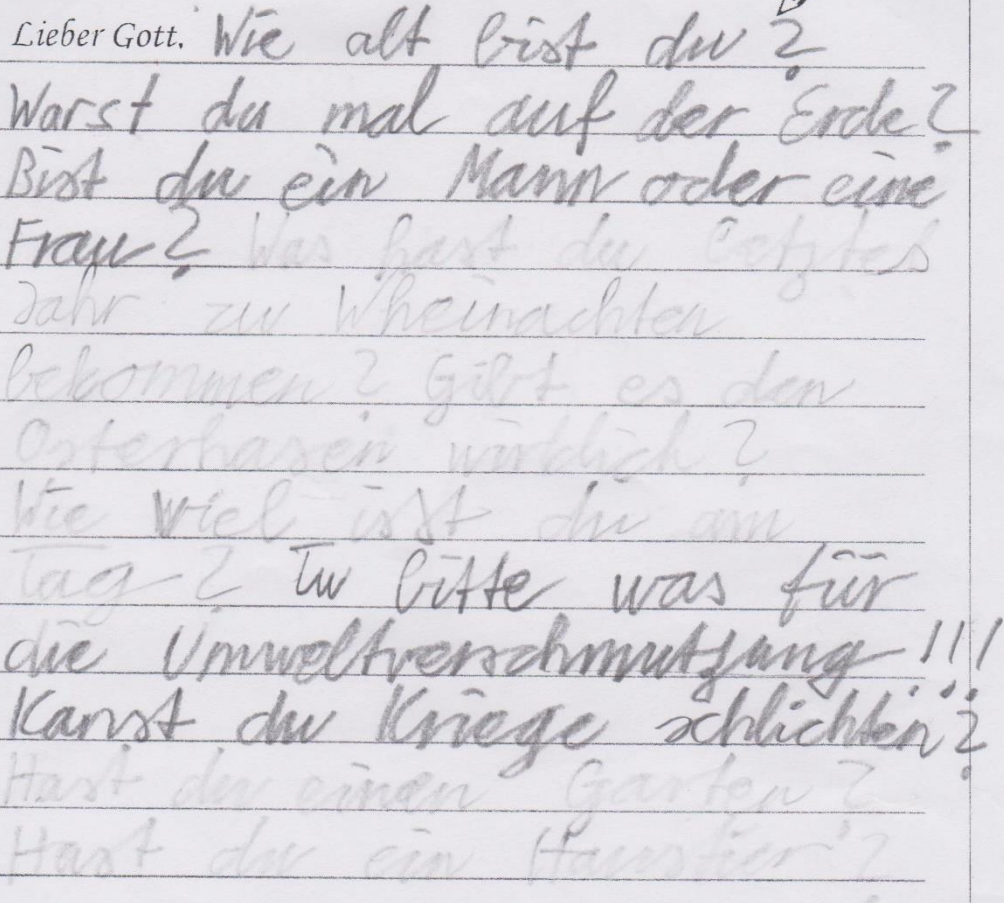 Lieber Gott, Wie alt bist du?
Warst du mal auf der Erde?
Bist du ein Mann oder eine
Frau? Was hast du letztes
Jahr zu Wheinachten
bekommen? Gibt es den
Osterhasen wirklich?
Wie viel isst du am
Tag? Tu bitte was für
die Umweltverschmutzung!!!
Kanst du Kriege schlichten?
Hast du einen Garten?
Hast du ein Haustier?